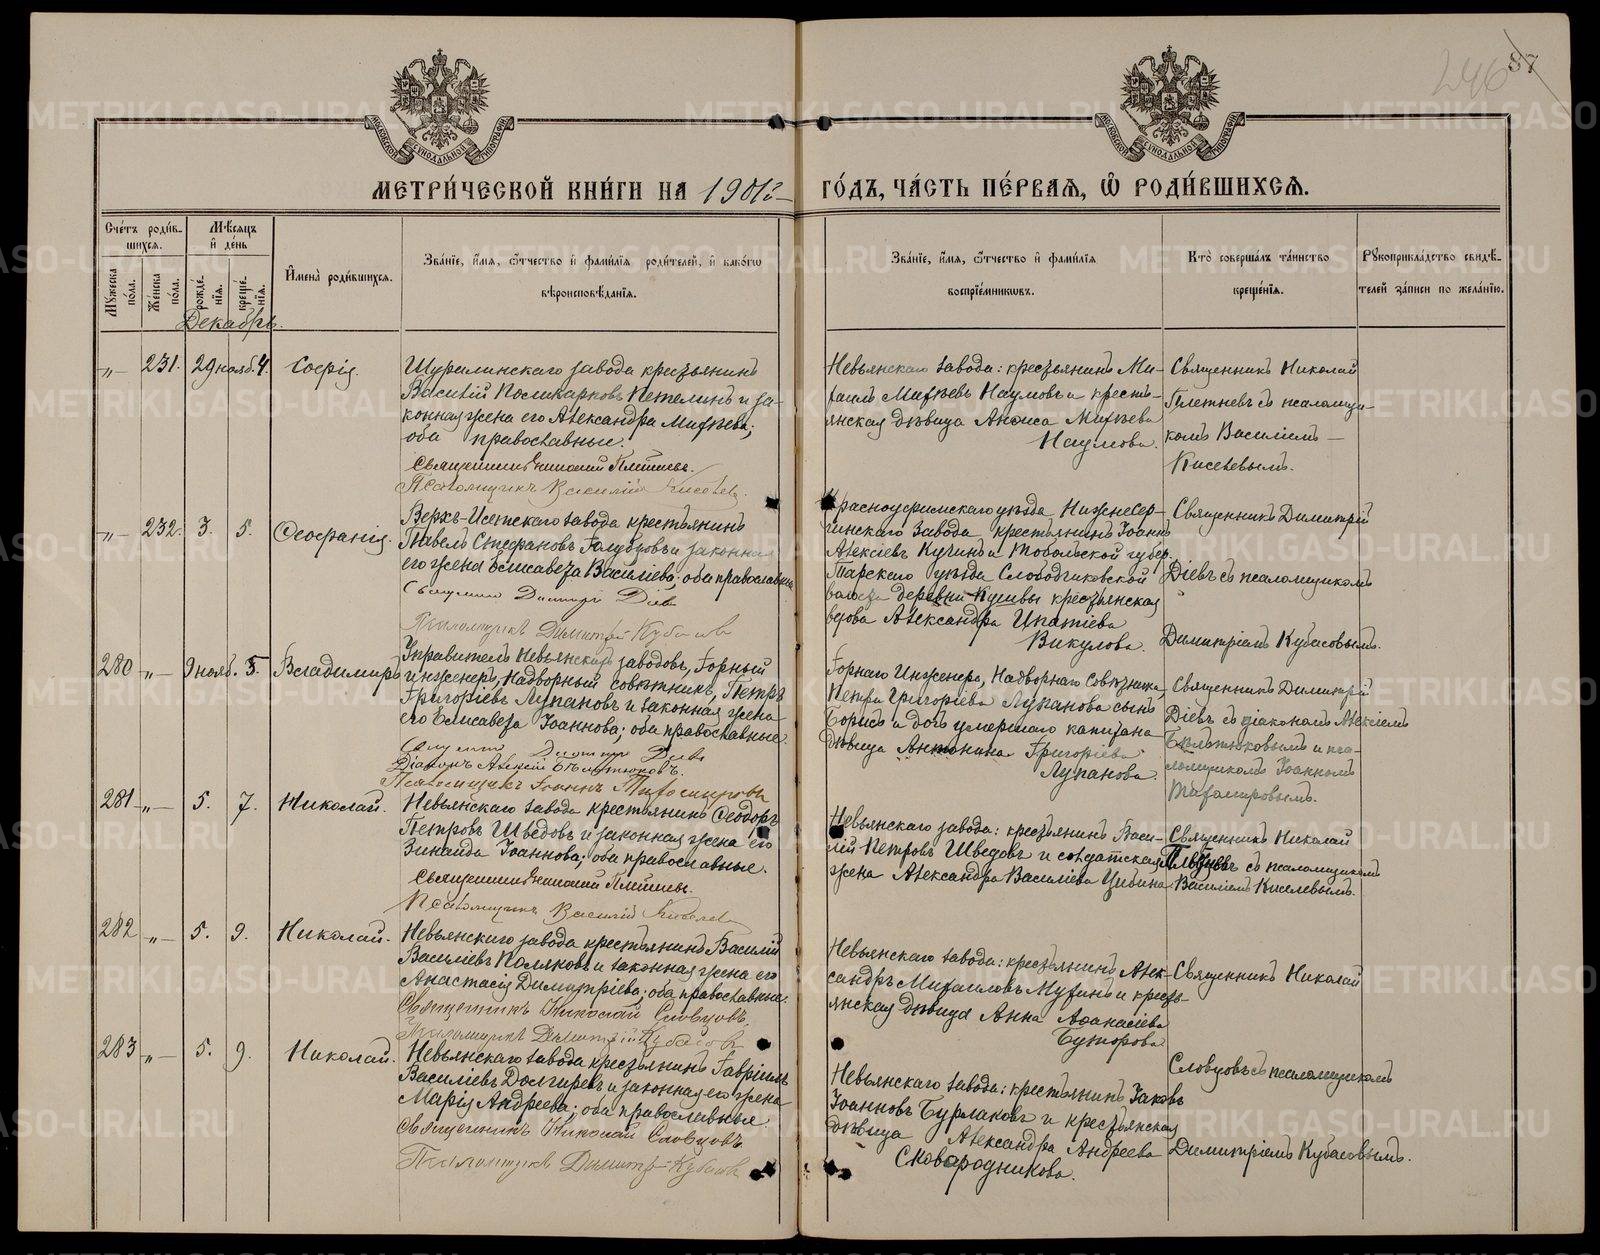 246
57
МОСКОВСКОЙ СИНОДАЛЬНОЙ ТИПОГРАФІИ
МОСКОВСКОЙ СИНОДАЛЬНОЙ ТИПОГРАФІИ
МЕТРИ́ЧЕСКОЙ КНИ́ГИ НА 1901й ГО́ДЪ, ЧА́СТЬ ПЕ́РВАЯ, Ѽ РОДИ́ВШИХСЯ.
Сче́тъ роди́в-
шихся.
Мꙋжеска по́ла.
Же́нска по́ла.
Мѣ́сяцъ и҆ де́нь
рожде́нїя.
креще́нїя.
И҆мена̀ роди́вшихся.
Зва́нїе, и҆́мя, ѻ҆́тчество и҆ фами́лїя роди́телей, и҆ како́гѡ
вѣроисповѣ́данїя.
Зва́нїе, и҆́мя, ѻ҆́тчество и҆ фами́лїя
воспрїе́мникѡвъ.
Кто̀ соверша́лъ та́инство
креще́нїя.
Рꙋкоприкла́дство свидѣ́-
телей за́писи по жела́нїю.
Декабрь.
-„- 231. 29 нояб. 4. Софія.
Шуралинскаго завода крестьянинъ
Василій Поликарповъ Петелинъ и за-
конная жена его Александра Михѣева;
оба православные.
Священникъ Николай Плетневъ.
Псаломщикъ Василій Киселевъ.
Невьянскаго завода: крестьянинъ Ми-
хаилъ Михѣевъ Наумовъ и кресть-
янская дѣвица Анѳиса Михѣева
Наумова.
Священникъ Николай
Плетневъ съ псаломщи-
комъ Василіемъ —
Киселевымъ.
-„- 232. 3. 5. Ѳеофанія.
Верхъ-Исетскаго завода крестьянинъ
Павелъ Стефановъ Голубцовъ и законная
его жена Елисавета Василіева; оба православные
Священникъ Димитрій Діевъ
Псаломщикъ Димитрій Кубасовъ
Красноуфимскаго уѣзда Нижнесер-
гинскаго завода крестьянинъ Іоаннъ
Алексіевъ Кучинъ и Тобольской губер.
Тарскаго уѣзда Слободчиковской
волости деревни Кушвы крестьянская
вдова Александра Ипатіева
Викулова.
Священникъ Димитрій
Діевъ съ псаломщикомъ
Димитріемъ Кубасовымъ.
280 -„- 9 нояб. 5. Владимиръ
Управитель Невьянскихъ заводовъ, Горный
инженеръ, Надворный совѣтникъ, Петръ
Григоріевъ Лупановъ и законная жена
его Елисавета Іоаннова; оба православные.
Священникъ Димитрій Діевъ
Діаконъ Алексій Бѣлтюковъ.
Псаломщикъ Іоаннъ Тихомировъ
Горнаго Инженера, Надворнаго Совѣтника,
Петра Григоріева Лупанова сынъ
Борисъ и дочь умершаго капитана
дѣвица Антонина Григоріева
Лупанова.
Священникъ Димитрій
Діевъ съ діакономъ Алексіемъ
Бѣлтюковымъ и пса-
ломщикомъ Іоанномъ
Тихомировымъ.
281 -„- 5. 7. Николай.
Невьянскаго завода крестьянинъ Ѳеодоръ
Петровъ Шведовъ и законная жена его
Зинаида Іоаннова; оба православные.
Священникъ Николай Плетневъ.
Псаломщикъ Василій Киселевъ
Невьянскаго завода: крестьянинъ Васи-
лій Петровъ Шведовъ и солдатская
жена Александра Василіева Цибина
Священникъ Николай
Плетневъ съ псаломщикомъ
Василіемъ Киселевымъ.
282 -„- 5. 9. Николай.
Невьянскаго завода крестьянинъ Василій
Василіевъ Поляковъ и законная жена его
Анастасія Димитріева; оба православные.
Священникъ Николай Словцовъ.
Псаломщикъ Димитрій Кубасовъ
Невьянскаго завода: крестьянинъ Алек-
сандръ Михаиловъ Мухинъ и кресть-
янская дѣвица Анна Аѳанасіева
Буторова
Священникъ Николай
Словцовъ съ псаломщикомъ
Димитріемъ Кубасовымъ.
283 -„- 5. 9. Николай.
Невьянскаго завода крестьянинъ Гавріилъ
Василіевъ Долгиревъ и законная его жена
Марія Андреева; оба православные
Священникъ Николай Словцовъ
Псаломщикъ Димитрій Кубасовъ
Невьянскаго завода: крестьянинъ Іаковъ
Іоанновъ Бурлаковъ и крестьянская
дѣвица Александра Андреева
Сковородникова.
METRIKI.GASO-URAL.RU